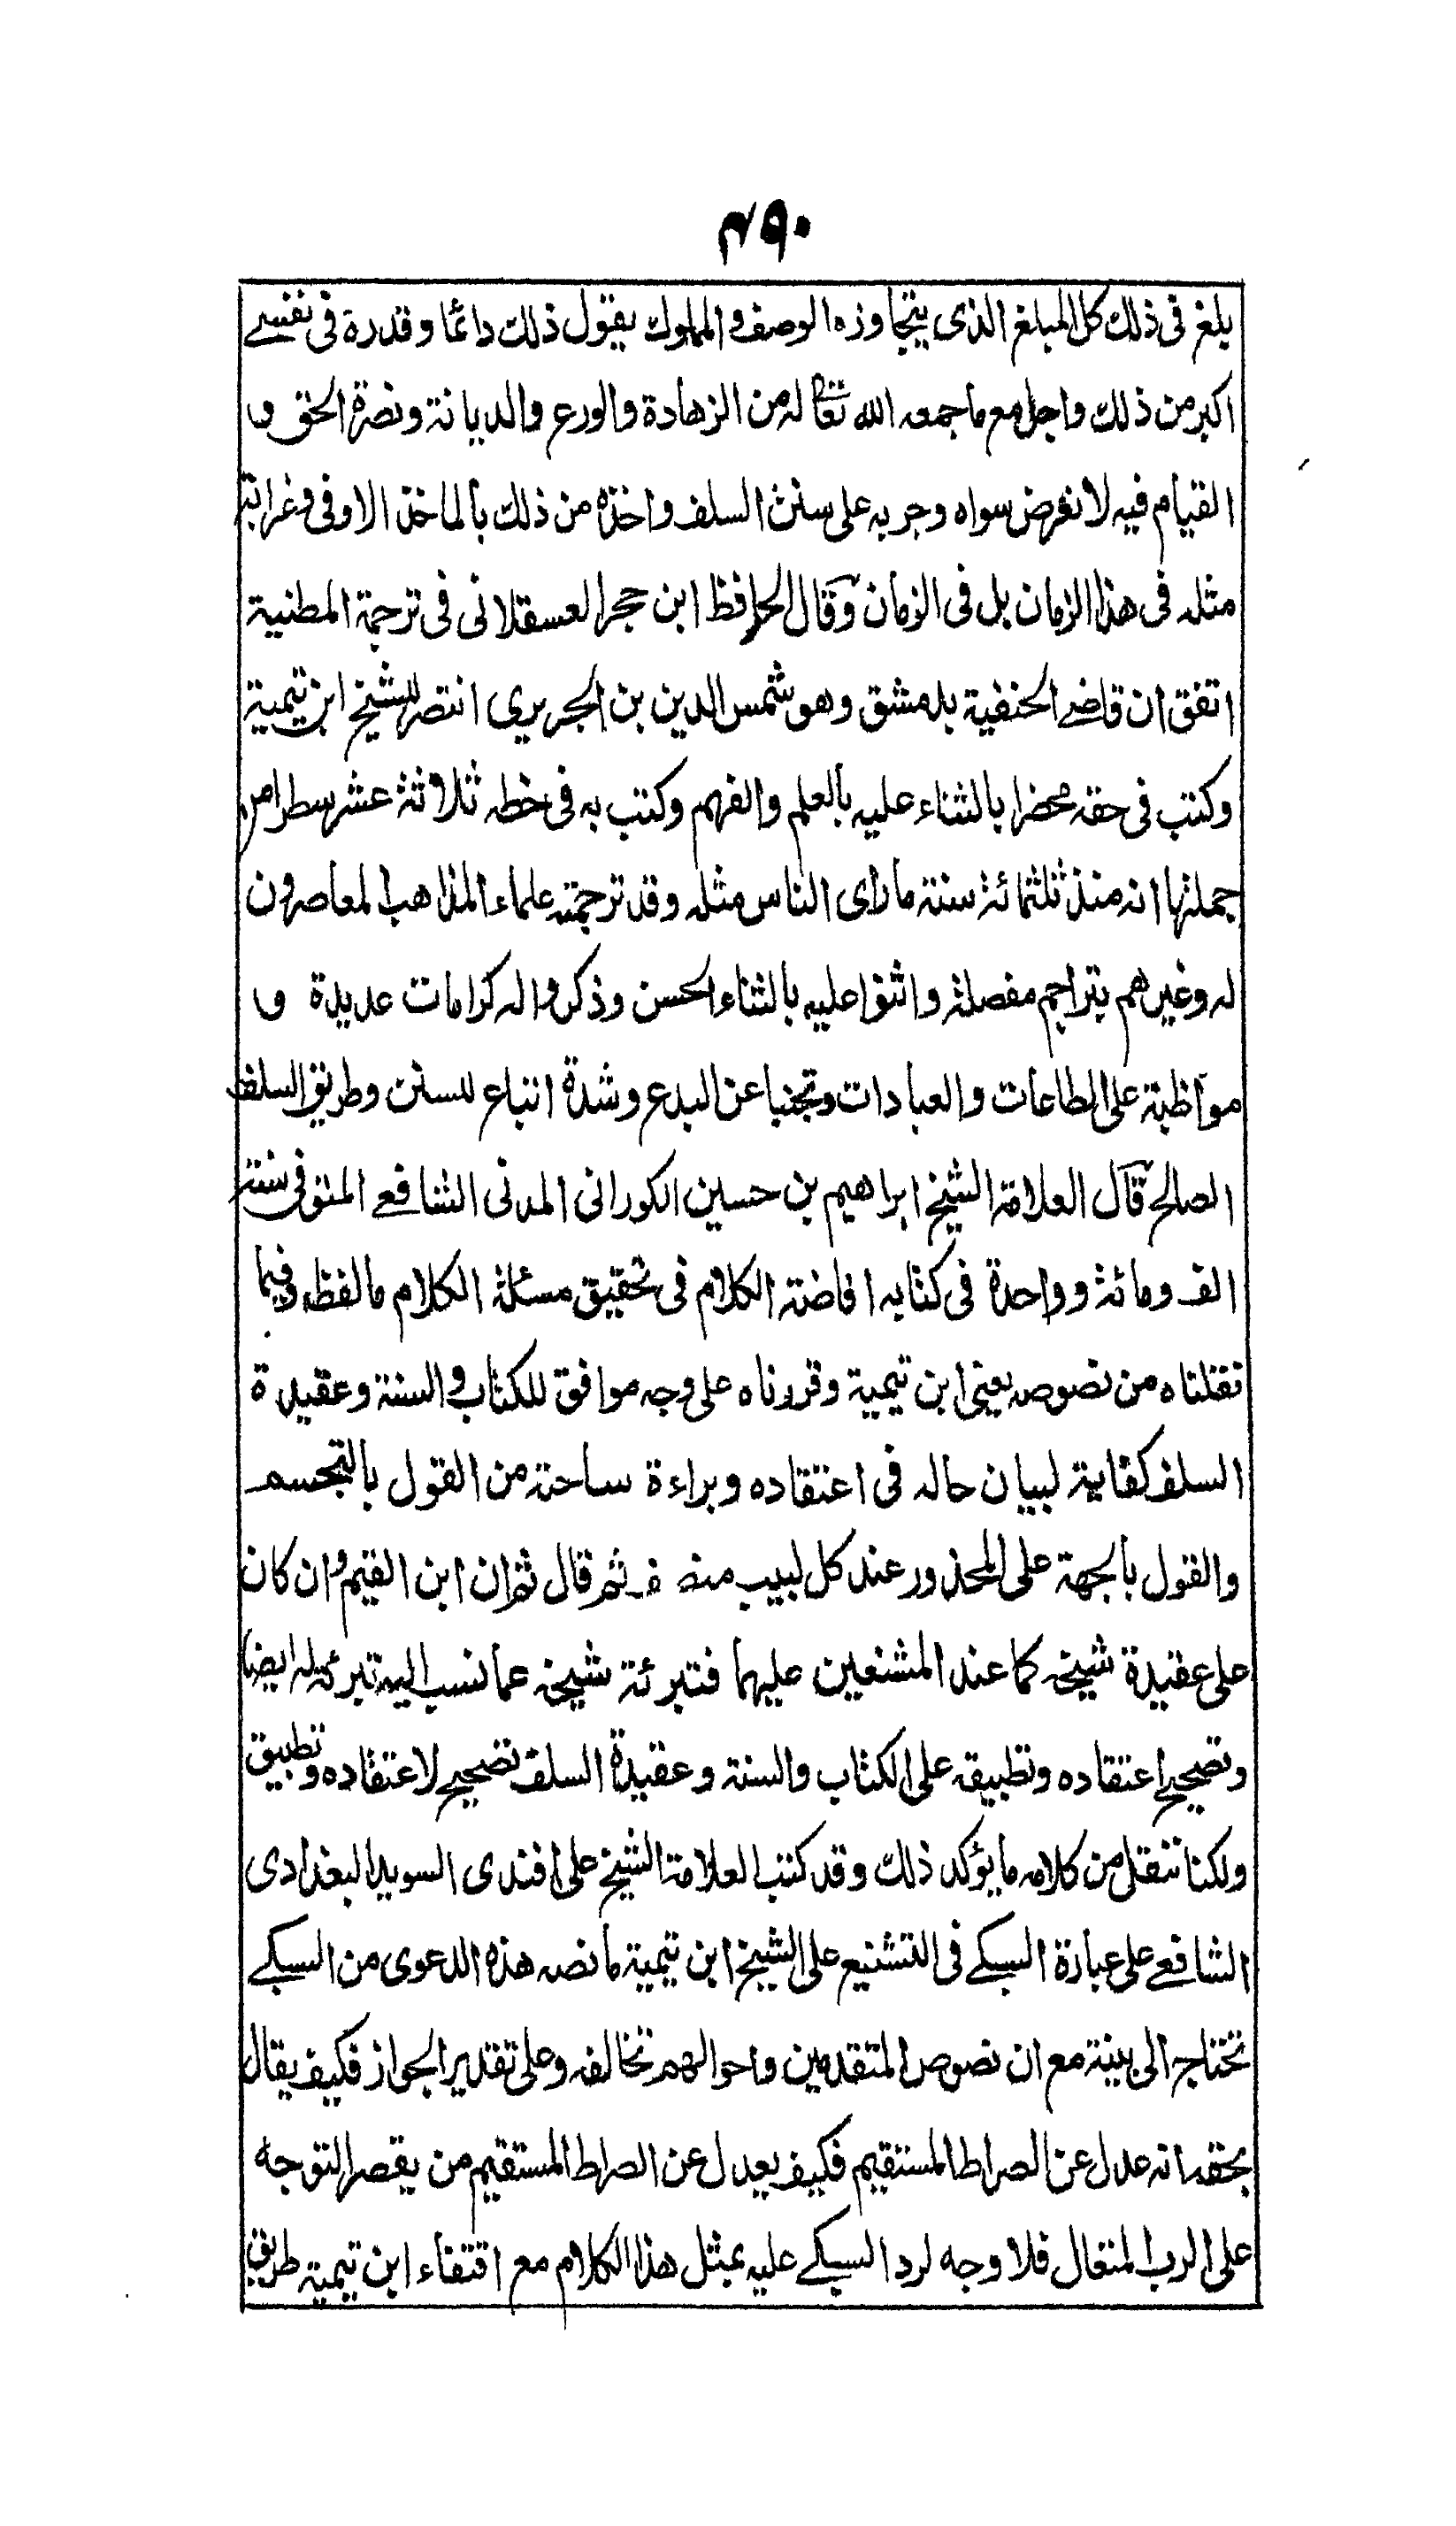 ٤٩٠
بلغ فى ذلك كل المبلغ الذى يتجاوزه الوصف والمملوك يقول ذلك دائما وقدرة فى نفسے
اكبر من ذلك واجل مع ما جمعه الله تعالى له من الزهادة والورع والديانة ونصرة الحق و
القيام فيه لا لغرض سواه وجريه على سنن السلف واخذه من ذلك بالماخذ الاوفى وغرابته
مثله فى هذا الزمان بل فى الزمان وقال الحافظ ابن حجر العسقلانى فى ترجمة المطنبة
اتفق ان قاضے الحنفية بدمشق وهو شمس الدين بن الجريري انتصر للشيخ ابن تيمية
وكتب فى حقه محضرا بالثناء عليه بالعلم والفهم وكتب به فى خطه ثلاثة عشر سطرا من
جملتها انه منذ ثلثمائة سنة ما راى الناس مثله وقد ترجمته علماء المذاهب المعاصرون
له وغيرهم بتراجم مفصلة واثنوا عليه بالثناء الحسن وذكروا له كرامات عديدة و
مواظبة على الطاعات والعبادات وتجنبا عن البدع وشدة اتباع للسنن وطريق السلف
الصالح قال العلامة الشيخ ابراهيم بن حسين الكورانى المدنى الشافعے المتوفى سنة
الف ومائة وواحدة فى كتابه افاضة الكلام فى تحقيق مسئلة الكلام ما لفظه وفيما
نقلناه من نصوصه يعنى ابن تيمية وقررناه على وجه موافق للكتاب والسنة وعقيدة
السلف كفاية لبيان حاله فى اعتقاده وبراءة ساحته من القول بالتجسم
والقول بالجهة على المحذور عند كل لبيب منصف ثم قال ثم ان ابن القيم وان كان
على عقيدة شيخه كما عند المشنعين عليهما فتبرئة شيخه عما نسب اليه تبرئة له ايضا
وتصحيح اعتقاده وتطبيقه على الكتاب والسنة وعقيدة السلف تصحيح لاعتقاده وتطبيق
ولكنا ننقل من كلامه ما يؤكد ذلك وقد كتب العلامة الشيخ على افندى السويدا البغدادى
الشافعے على عبارة السبكے فى التشنيع على الشيخ ابن تيمية ما نصه هذه الدعوى من السبكے
تحتاج الى بينة مع ان نصوص المتقدمين واحوالهم تخالفه وعلى تقدير الجواز فكيف يقال
بحقه انه عدل عن الصراط المستقيم فكيف يعدل عن الصراط المستقيم من يقصر التوجه
على الرب المتعال فلا وجه لرد السبكے عليه بمثل هذا الكلام مع اقتفاء ابن تيمية طريق